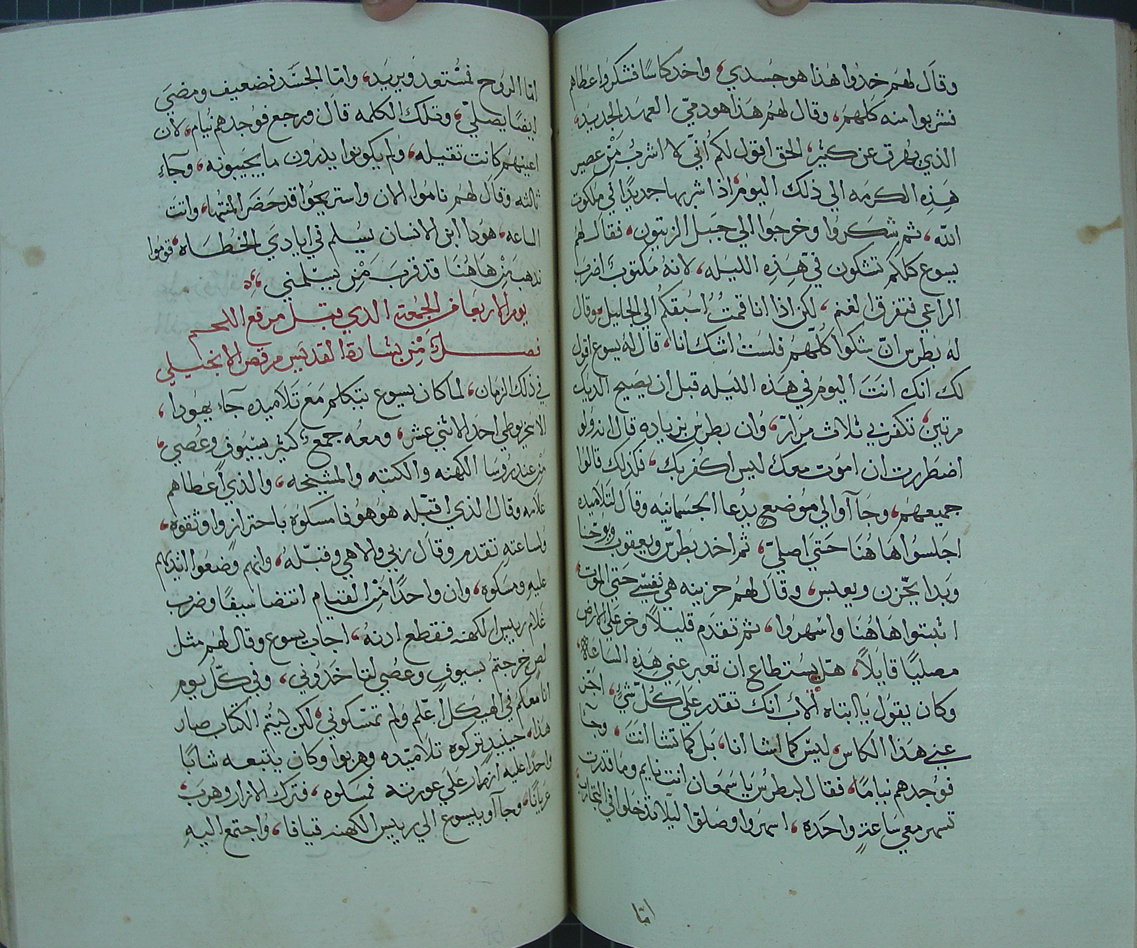 وقال لهم خدوا هذا هو جسدي، واخد كاسا فشكر واعطاهم
فشربوا منه كلهم، وقال لهم هذا هو دمي العهد الجديد،
الذي يهرق عن كثير، الحق اقول لكم اني لا اشرب من عصير
هذه الكرمه الي ذلك اليوم اذ اشربها جديدًا في ملكوت
الله، ثم شكروا وخرجوا الي جبل الزيتون، فقال لهم
يسوع كلكم تشكون في هذه الليله، لانه مكتوب اضرب
الراعي فتتفرق الغنم، لكن اذا انا قمت اسبقكم الي الجليل، وقال
له بطرس ان شكوا كلهم فلست اشك انا، قال له يسوع اقول
لك انك انت اليوم في هذه الليله قبل ان يصيح الديك
مرتين، تكفر بي ثلاث مرار، وان بطرس بزياده قال اني ولو
اضطررت ان اموت معك ليس اكفر بك، فكذلك قالوا
جميعهم، وجاآوا الي موضع يدعا الجسمانيه وقال لتلاميذه
اجلسوا هاهنا حتي اصلي، ثم اخد بطرس ويعقوب ويوحنا
وبدا يحزن ويعبس، وقال لهم حزينه هي نفسي حتي الموت
اثبتوا هاهنا واسهروا، ثم تقدم قليلاً وخر علي الارض
مصليًا قايلاً، هل يستطاع ان تعبر عني هذه الساعة
وكان يقول يا ابتاه الاب انك تقدر علي كل شي، اجز
عني هذا الكاس، ليس كما اشا انا، بل كما تشا انت، وجا
فوجدهم نيامًا، فقال لبطرس يا سمعان انت نايم وما قدرت
تسهر معي ساعة واحده، اسهروا وصلوا ليلا تدخلوا في التجارب
اما
اما الروح فمستعد ويريد، واما الجسد فضعيف ومضي
ايضًا يصلي، وتلك الكلمه قال ورجع فوجدهم نيام، لان
اعينهم كانت ثقيله، ولم يكونوا يدرون ما يجيبونه، وجاء
ثالثه وقال لهم ناموا الان واستريحوا قد حضر المنتها، واتت
الساعه، هودا ابن الانسان يسلم في ايادي الخطاه، قوموا
نذهب من هاهنا قد قرب من يسلمني
يوم الاربعا في الجمعة الذي قبل مرفع اللحم
فصل من بشارة القديس مرقص الانجيلي
في ذلك الزمان، لما كان يسوع يتكلم مع تلاميده جاء يهودا،
الاسخريوطي احد الاثني عشر، ومعه جمع كثير بسيوف وعصي،
من عند روسا الكهنه والكتبه والمشيخه، والذي اعطاهم
علامه وقال الذي اقبله هو هو فامسكوه باحتراز وثقوه،
ولساعته تقدم وقال ربي والاهي وقبله، وانهم وضعوا ايديهم
عليه ومسكوه، وان واحدًا من القيام انتضا سيفًا وضرب
غلام رييس الكهنه فقطع ادنه، اجاب يسوع وقال لهم مثل
لص خرجتم بسيوف وعصي لتاخدوني، وفي كل يوم
انا معكم في الهيكل اعلم ولم تمسكوني، لكن ليتم الكتاب صار
هذا، حينيد تركوه تلاميده وهربوا وكان يتبعه شابًا
واحدًا عليه ازار علي عورته فمسكوه، فترك الازار وهرب
عريانًا، وجاآو بيسوع الي رييس الكهنه قيافا، واجتمع اليه